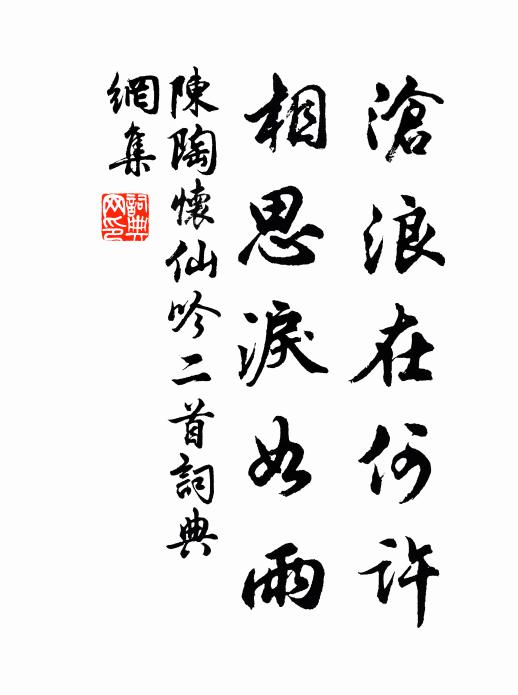 滄浪在何許
相思淚如雨
陳陶懷仙吟二首詞典
網集
詞典
网印